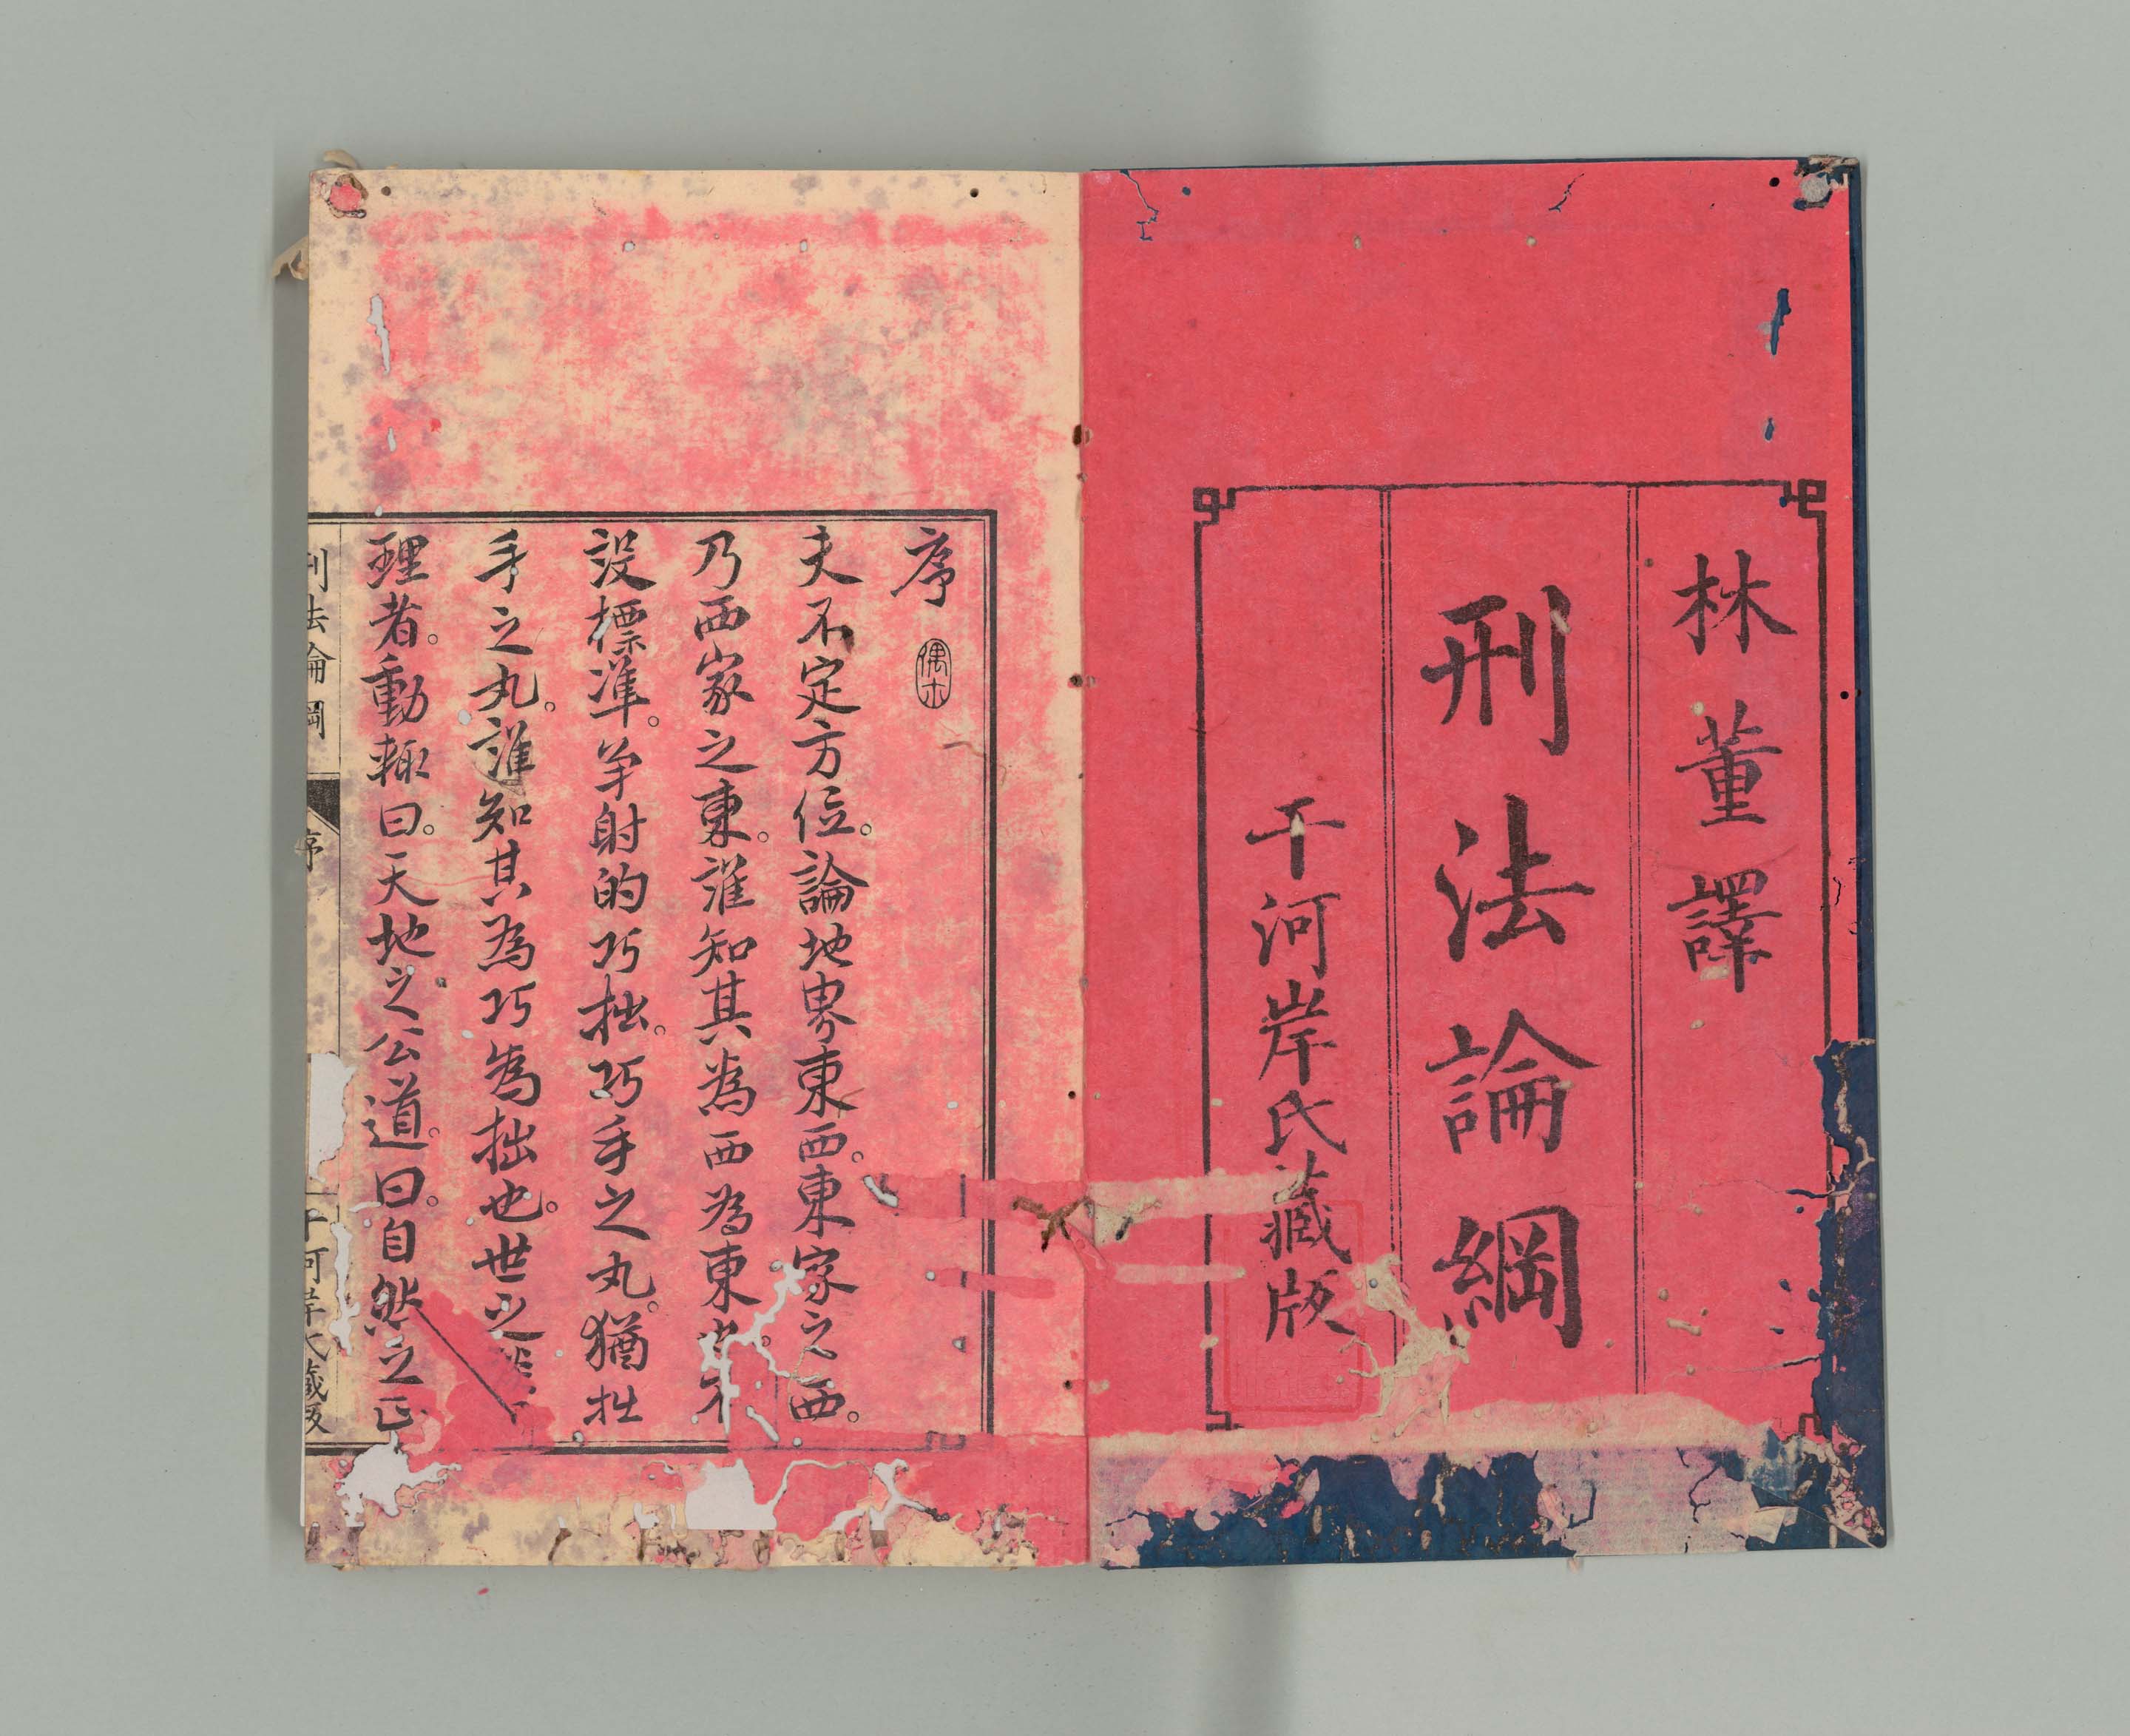 林董譯
刑法論綱
干河岸氏藏版
序
夫不定方位。論地界東西。東家之西。
乃西家之東。誰知其為西為東
設標準。羊射的巧拙。巧手之丸。猶拙
手之丸。誰知其為巧為拙也。世之
理者。動輙曰。天地之公道。曰。自然之正
刑法論綱
序
干河岸氏藏版